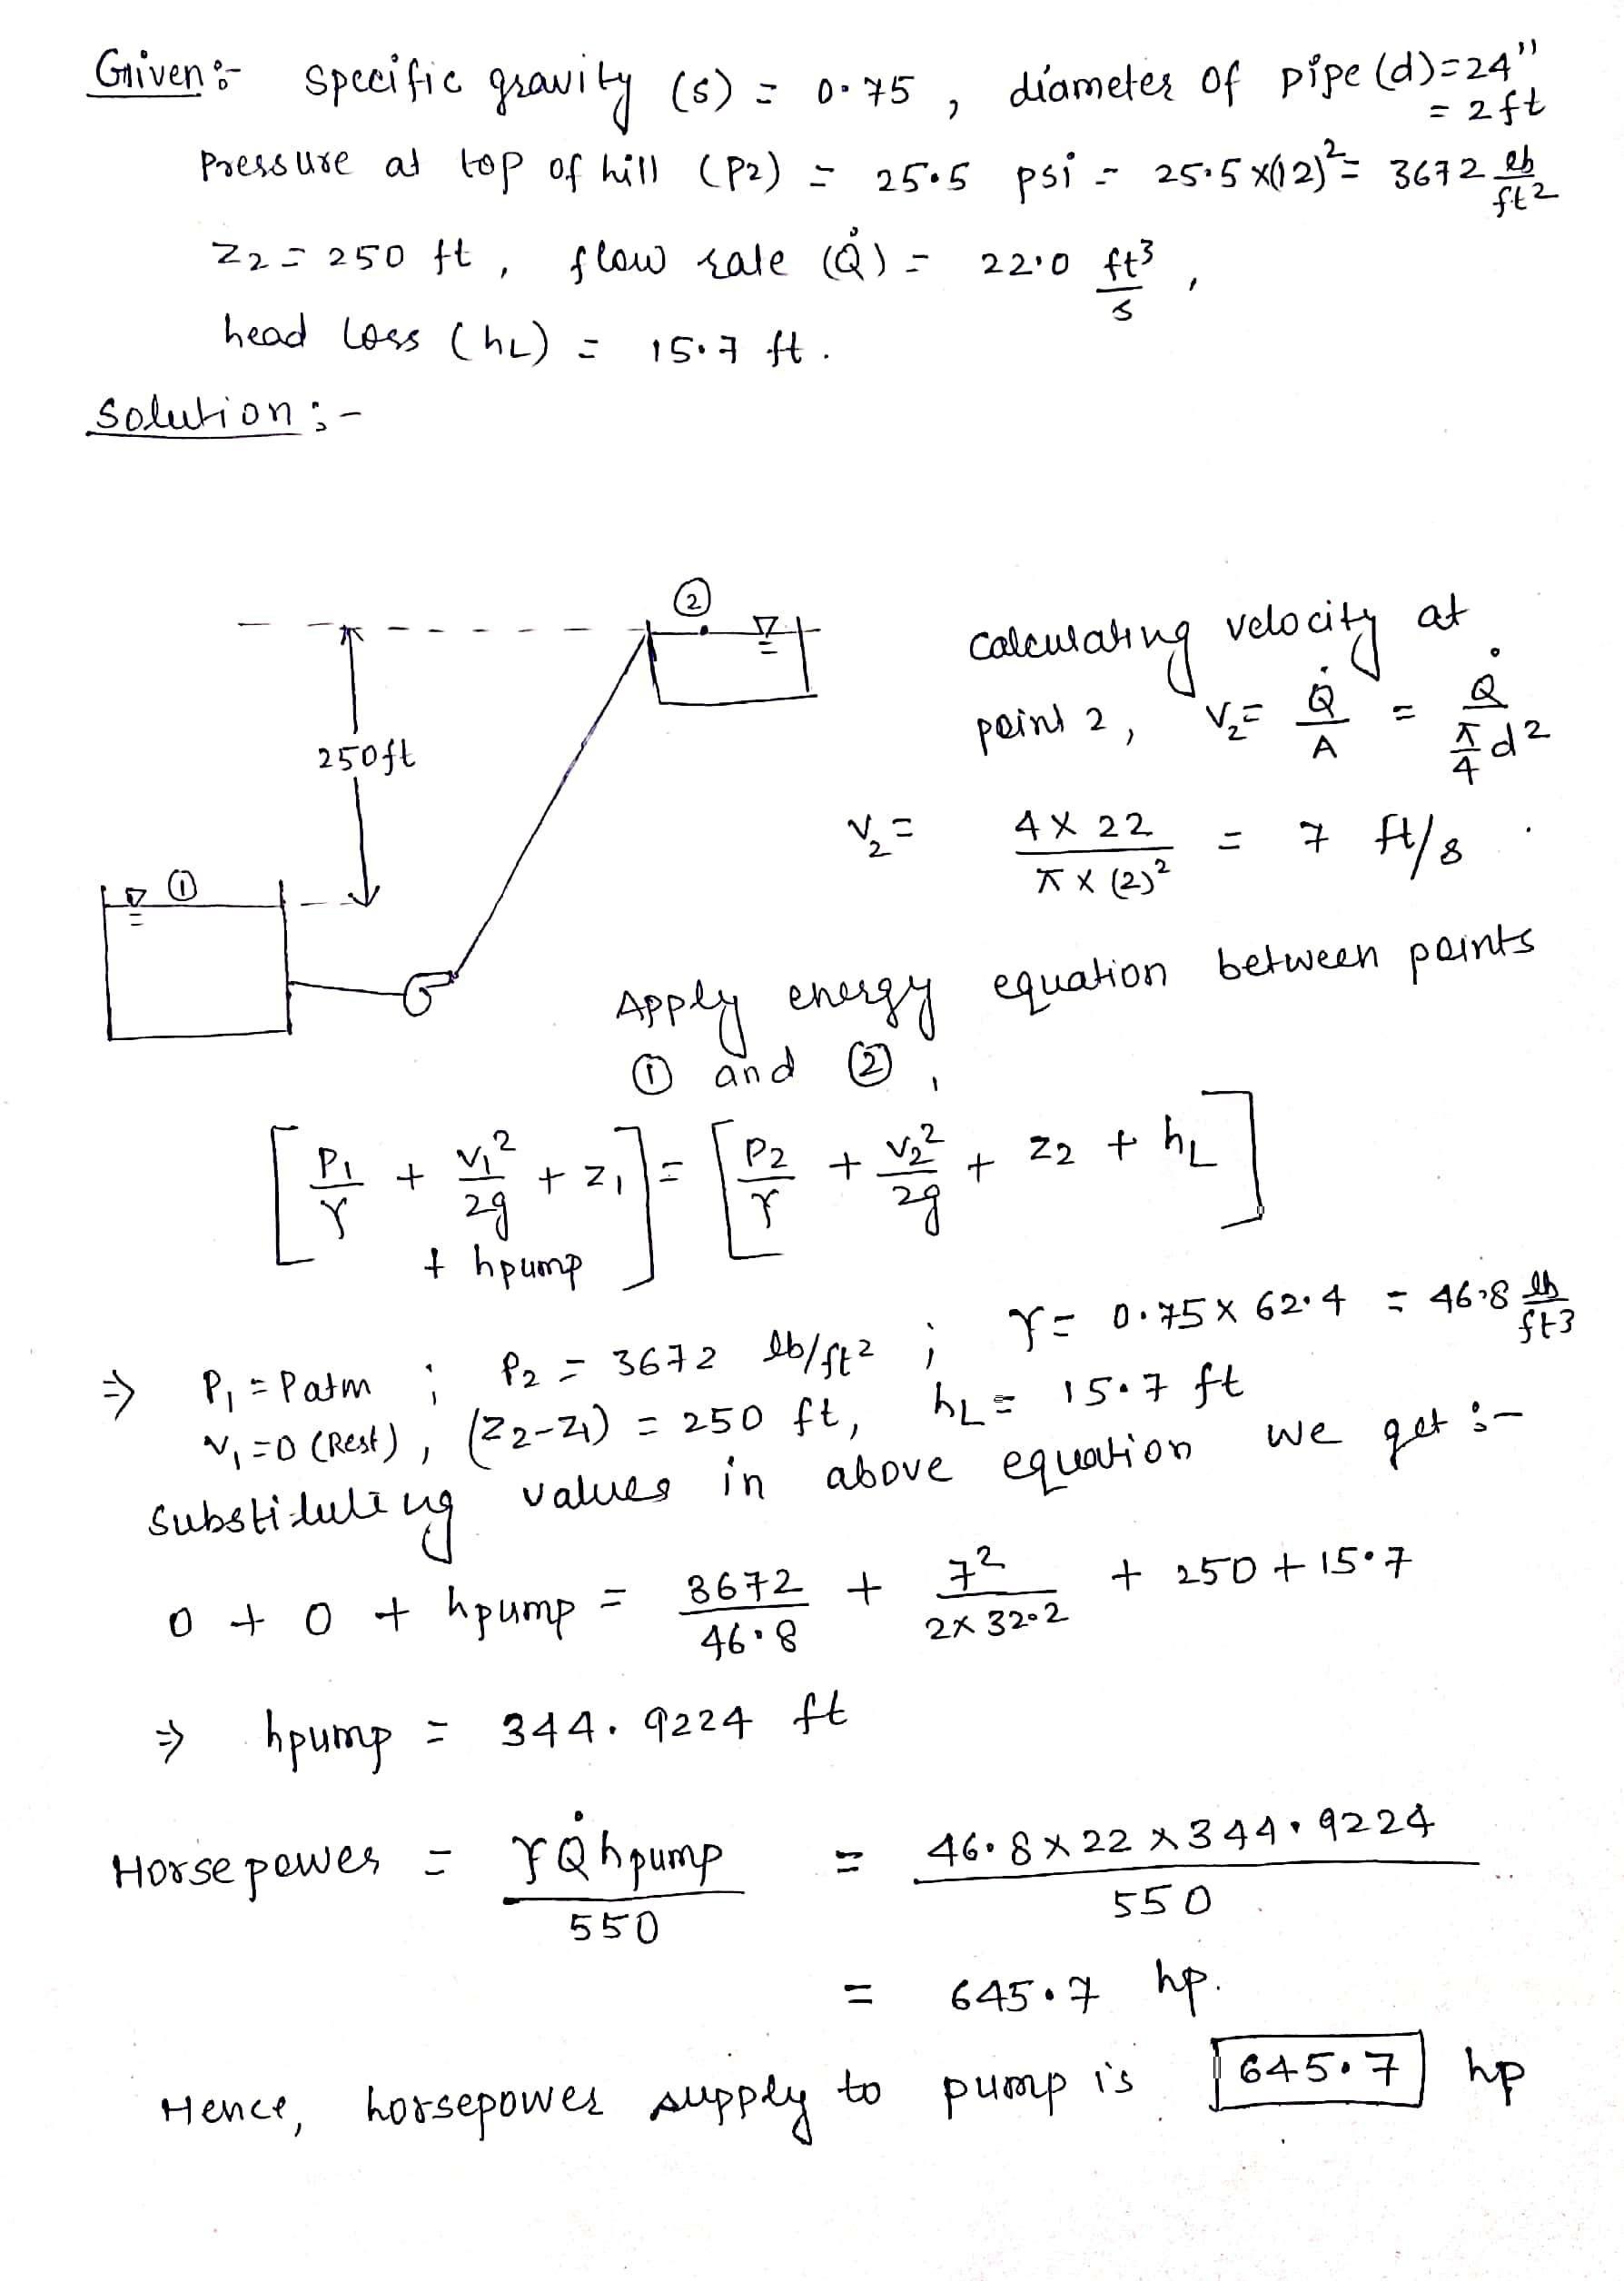 Given:- Specific gravity (s) = 0.75 , diameter of pipe (d)=24"
= 2 ft
Pressure at top of hill (P2) = 25.5 psi = 25.5x(12)²= 3672 lb/ft2
Z2 = 250 ft , flow rate (Q̇) = 22.0 ft3/s ,
head loss (hL) = 15.7 ft .
Solution :-
②
Calculating velocity at
point 2 , V2= Q̇/A = Q̇/(π/4 d2)
250ft
V2 = (4 X 22)/(π X (2)²) = 7 ft/s .
①
Apply energy equation between points
① and ② ,
[P1/γ + V1²/2g + z1 + hpump] = [P2/γ + V2²/2g + Z2 + hL]
⇒ P1 = Patm ; P2 = 3672 lb/ft2 ; γ = 0.75 X 62.4 = 46.8 lb/ft3
V1=0 (Rest) , (Z2-Z1) = 250 ft, hL = 15.7 ft
Substituting values in above equation we get :-
0 + 0 + hpump = 3672/46.8 + 7²/(2X 32.2) + 250 + 15.7
⇒ hpump = 344.9224 ft
Horsepower = γQ̇hpump/550 = (46.8 X 22 X 344.9224)/550
= 645.7 hp.
Hence, horsepower supply to pump is 645.7 hp